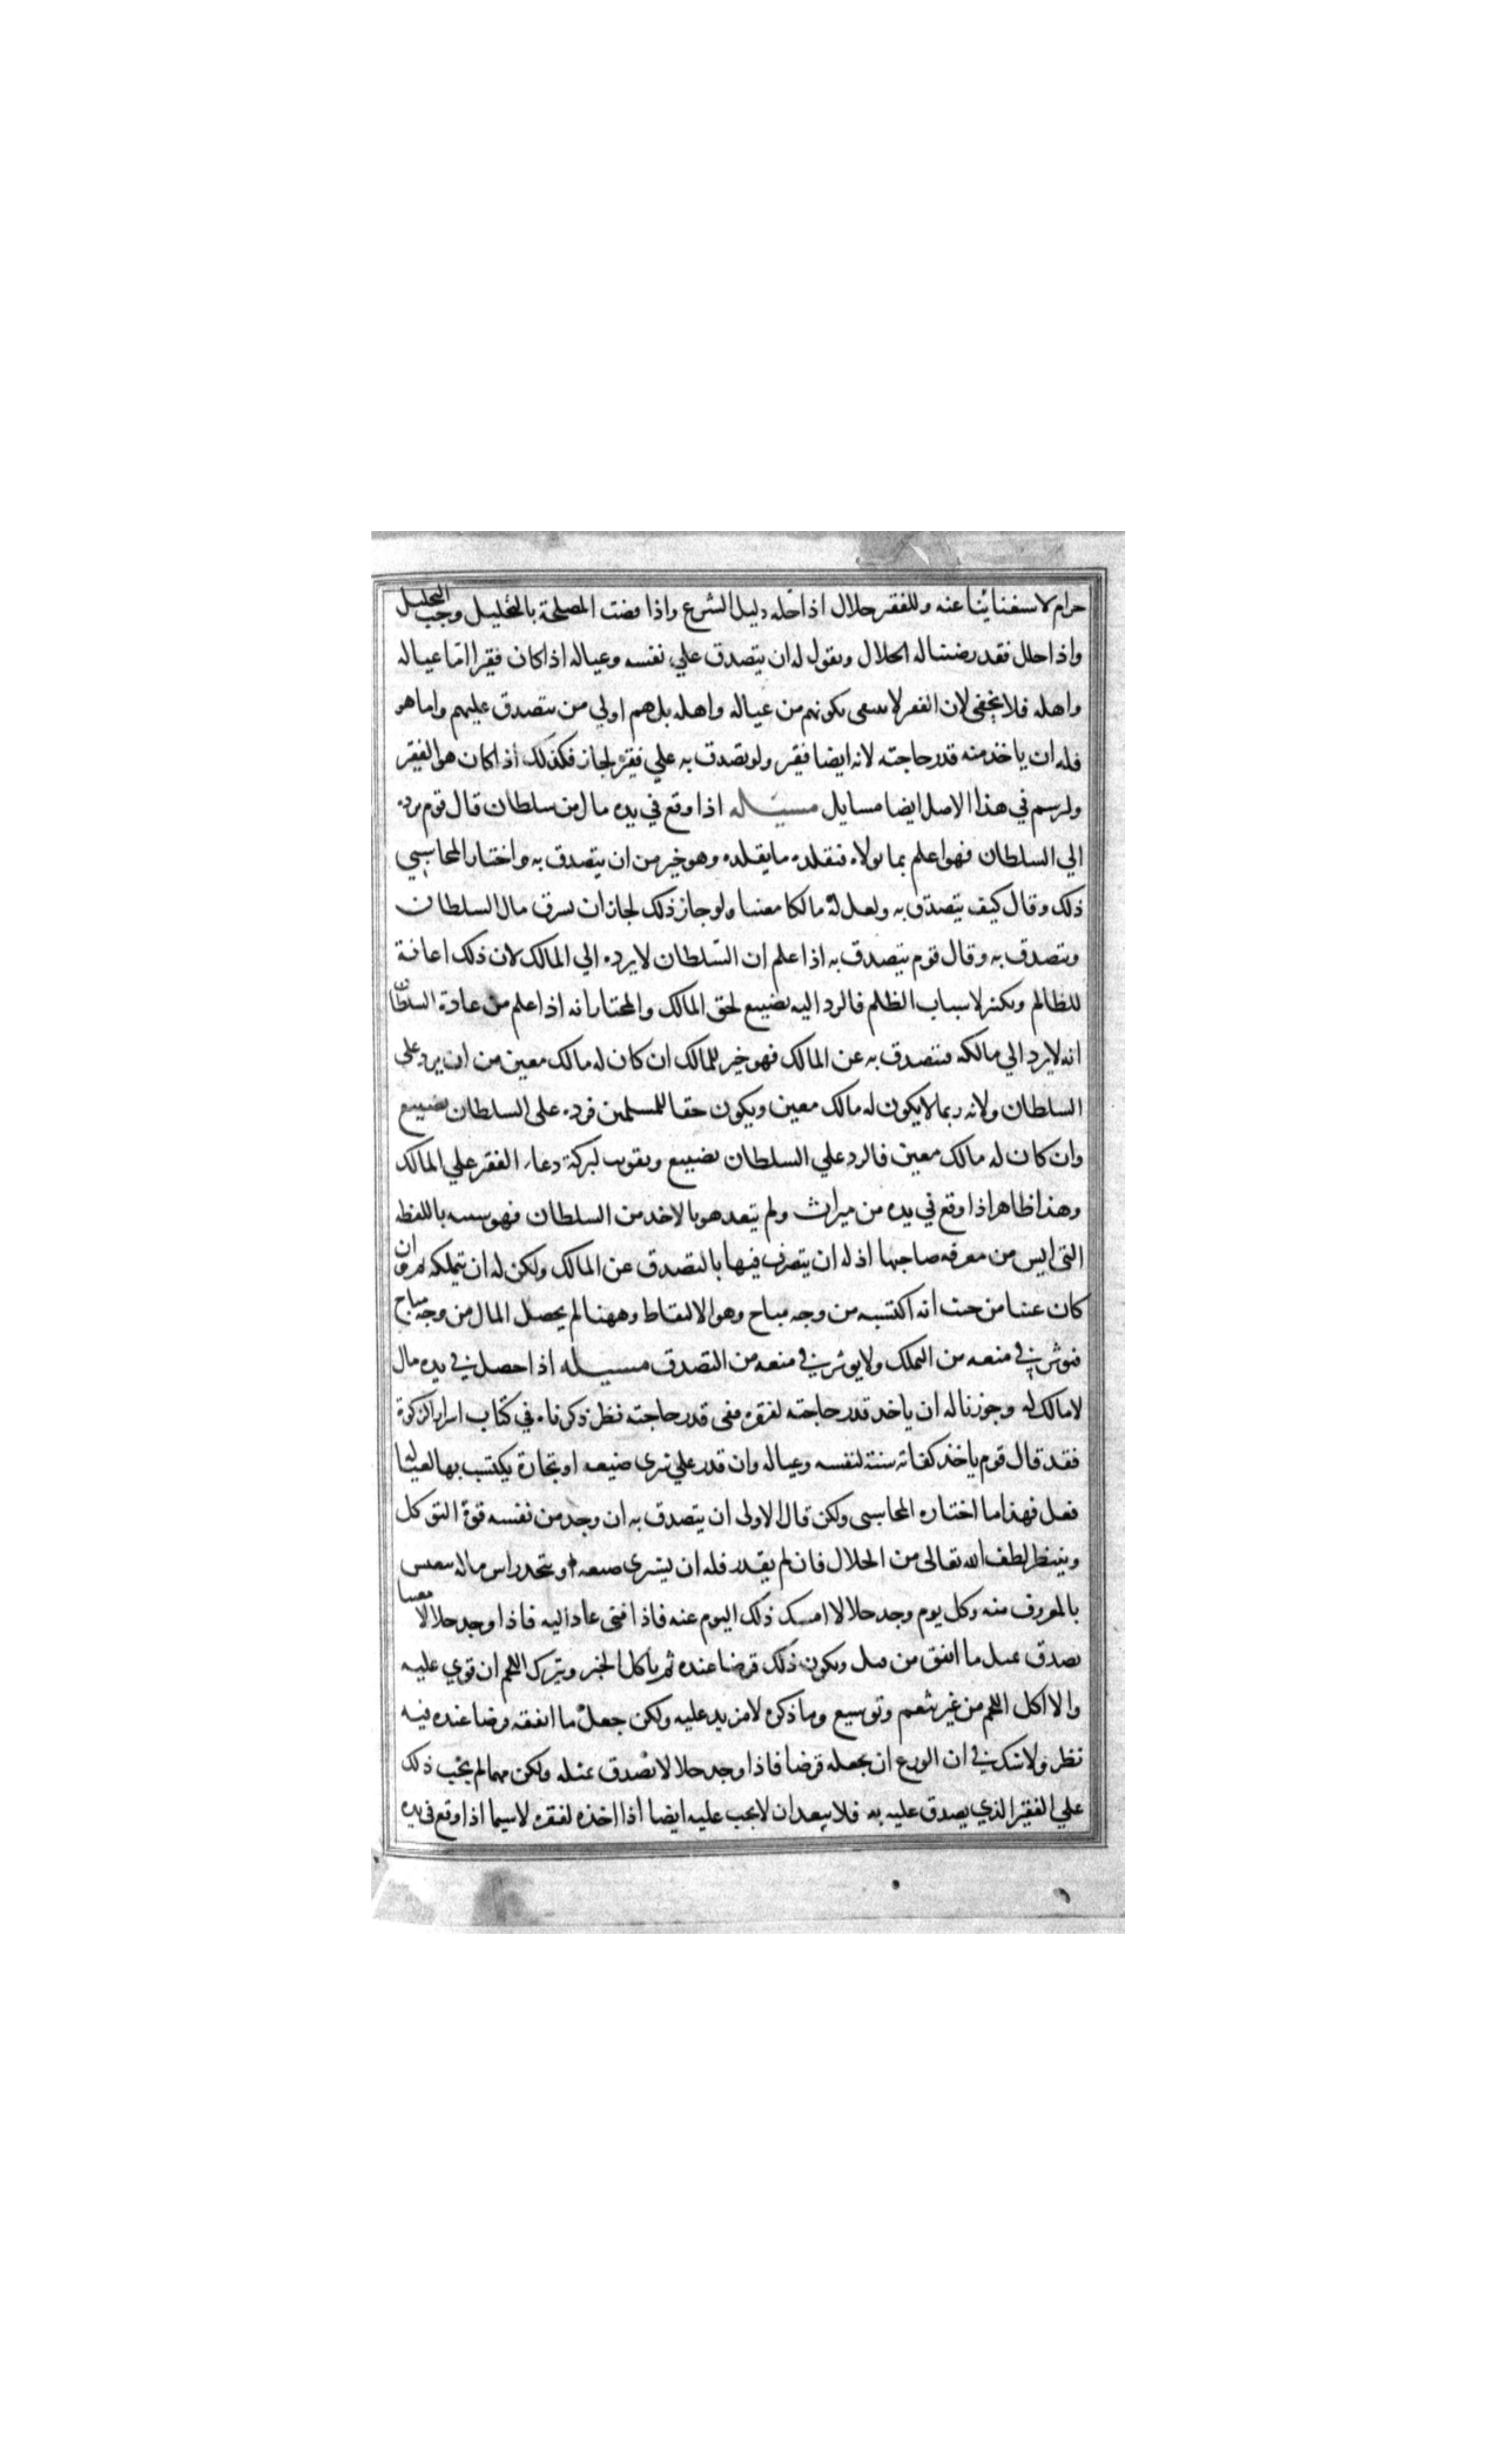 حرام لاستغنائنا عنه وللفقير حلال اذا حله دليل الشرع واذا قضت المصلحة بالتحليل وجب التحليل
واذا حلل فقد رضينا له الحلال ونقول له ان يتصدق علي نفسه وعياله اذا كان فقيرا اما عياله
واهله فلا يخفى لان الفقر لا ينتفى بكونهم من عياله واهله بل هم اولي من يتصدق عليهم واما هو
فله ان ياخذ منه قدر حاجته لانه ايضا فقير ولو تصدق به علي فقير لجاز فكذلك اذا كان هو الفقير
ولنرسم في هذا الاصل ايضا مسايل مسيله اذا وقع في يده مال من سلطان قال قوم يرده
الي السلطان فهو اعلم بما تولاه فنقلده ما يقلده وهو خير من ان يتصدق به واختار المحاسبي
ذلك وقال كيف يتصدق به ولعل له مالكا معينا ولو جاز ذلك لجاز ان يسرق مال السلطان
ويتصدق به وقال قوم يتصدق به اذا علم ان السلطان لا يرده الي المالك لان ذلك اعانة
للظالم وتكثير لاسباب الظلم فالرد اليه تضييع لحق المالك والمختار انه اذا علم من عادة السلطان
انه لا يرد الي مالكه فيتصدق به عن المالك فهو خير للمالك ان كان له مالك معين من ان يرد على
السلطان ولانه ربما لا يكون له مالك معين ويكون حقا للمسلمين فرده على السلطان تضييع
وان كان له مالك معين فالرد علي السلطان تضييع وتفويت لبركة دعاء الفقير علي المالك
وهذا ظاهر اذا وقع في يده من ميراث ولم يتعد هو بالاخذ من السلطان فهو شبيه باللقطه
التى ايس من معرفه صاحبها اذ له ان يتصرف فيها بالتصدق عن المالك ولكن له ان يتملكه ثم وان
كان غنيا من حيث انه اكتسبه من وجه مباح وهو الالتقاط وههنا لم يحصل المال من وجه مباح
فيوثر في منعه من التملك ولا يوثر في منعه من التصدق مسيله اذا حصل في يده مال
لا مالك له وجوزنا له ان ياخذ قدر حاجته لفقره ففى قدر حاجته نظر ذكرناه في كتاب اسرار الزكوة
فقد قال قوم ياخذ كفاية سنة لنفسه وعياله وان قدر علي شرى ضيعه او تجارة يكتسب بها لعياله
فعل فهذا ما اختاره المحاسبى ولكن قال الاولى ان يتصدق به ان وجد من نفسه قوة التوكل
وينتظر لطف الله تعالى من الحلال فان لم يقدر فله ان يشترى ضيعه او يتخذ راس ماله يتعيش
بالمعروف منه وكل يوم وجد حلالا امسك ذلك اليوم عنه فاذا فنى عاد اليه فاذا وجد حلالا معينا
تصدق بمثل ما انفق من قبل ويكون ذلك قرضا عنده ثم ياكل الخبز ويترك اللحم ان قوي عليه
والا اكل اللحم من غير تنعم وتوسيع وما ذكره لا مزيد عليه ولكن جعل ما انفقه قرضا عنده فيه
نظر ولا شك في ان الورع ان يجعله قرضا فاذا وجد حلالا تصدق بمثله ولكن مهما لم يجب ذلك
علي الفقير الذي يصدق عليه به فلا يبعد ان لا يجب عليه ايضا اذا اخذه لفقره لا سيما اذا وقع فى يده